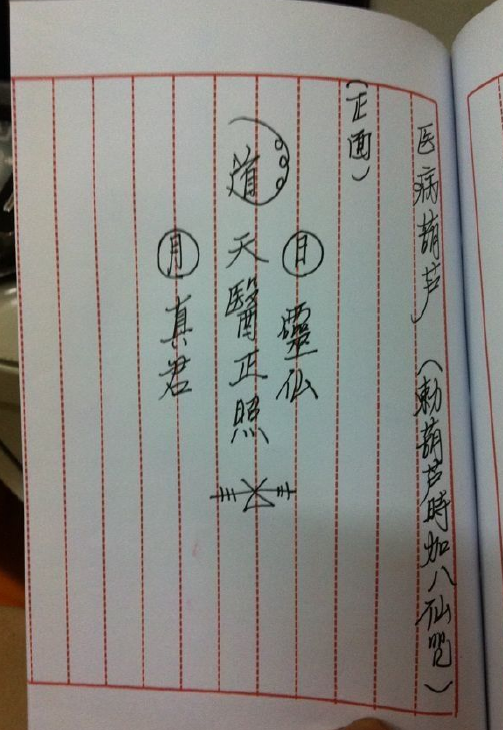 医病葫芦（勅葫芦時加八仙咒）
（正面）
日 靈仙
道 天醫正照
月 真君